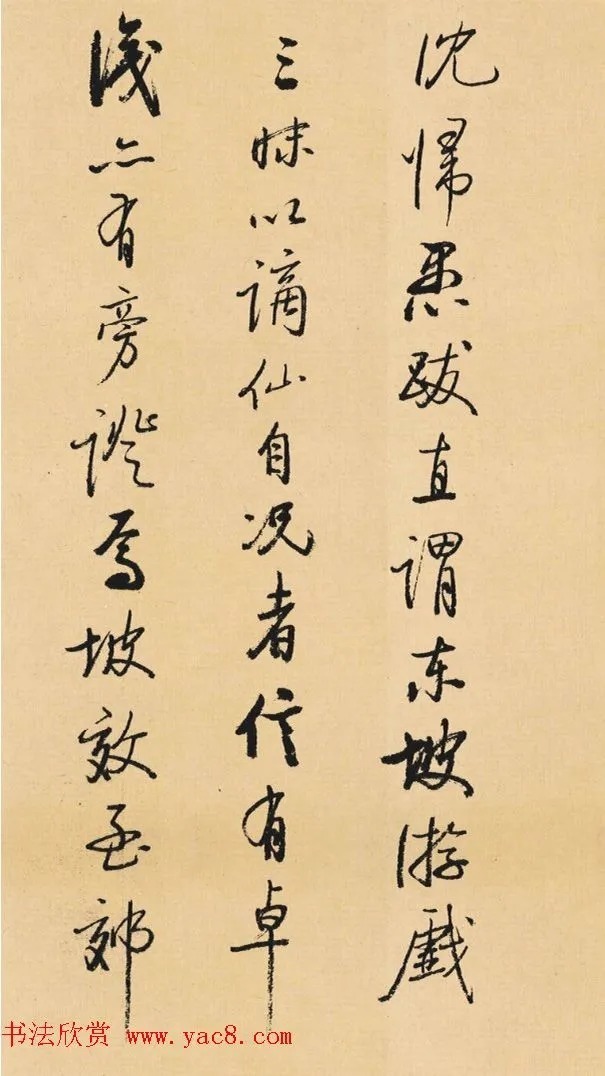 沈歸愚跋直謂東坡游戲
三昧以謫仙自况者信有卓
識亦有旁證焉坡效孟郊
书法欣赏 www.yac8.com